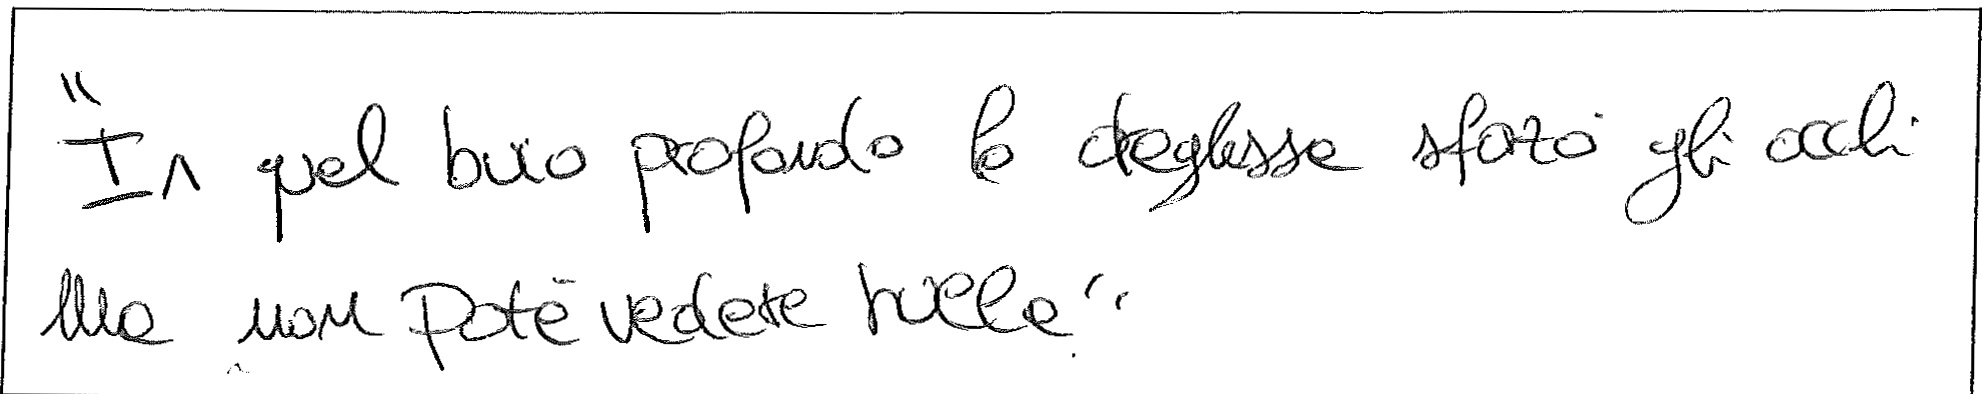 "In quel buio profondo la dreghessa sforzò gli occhi
Ma non potè vedere nulla".